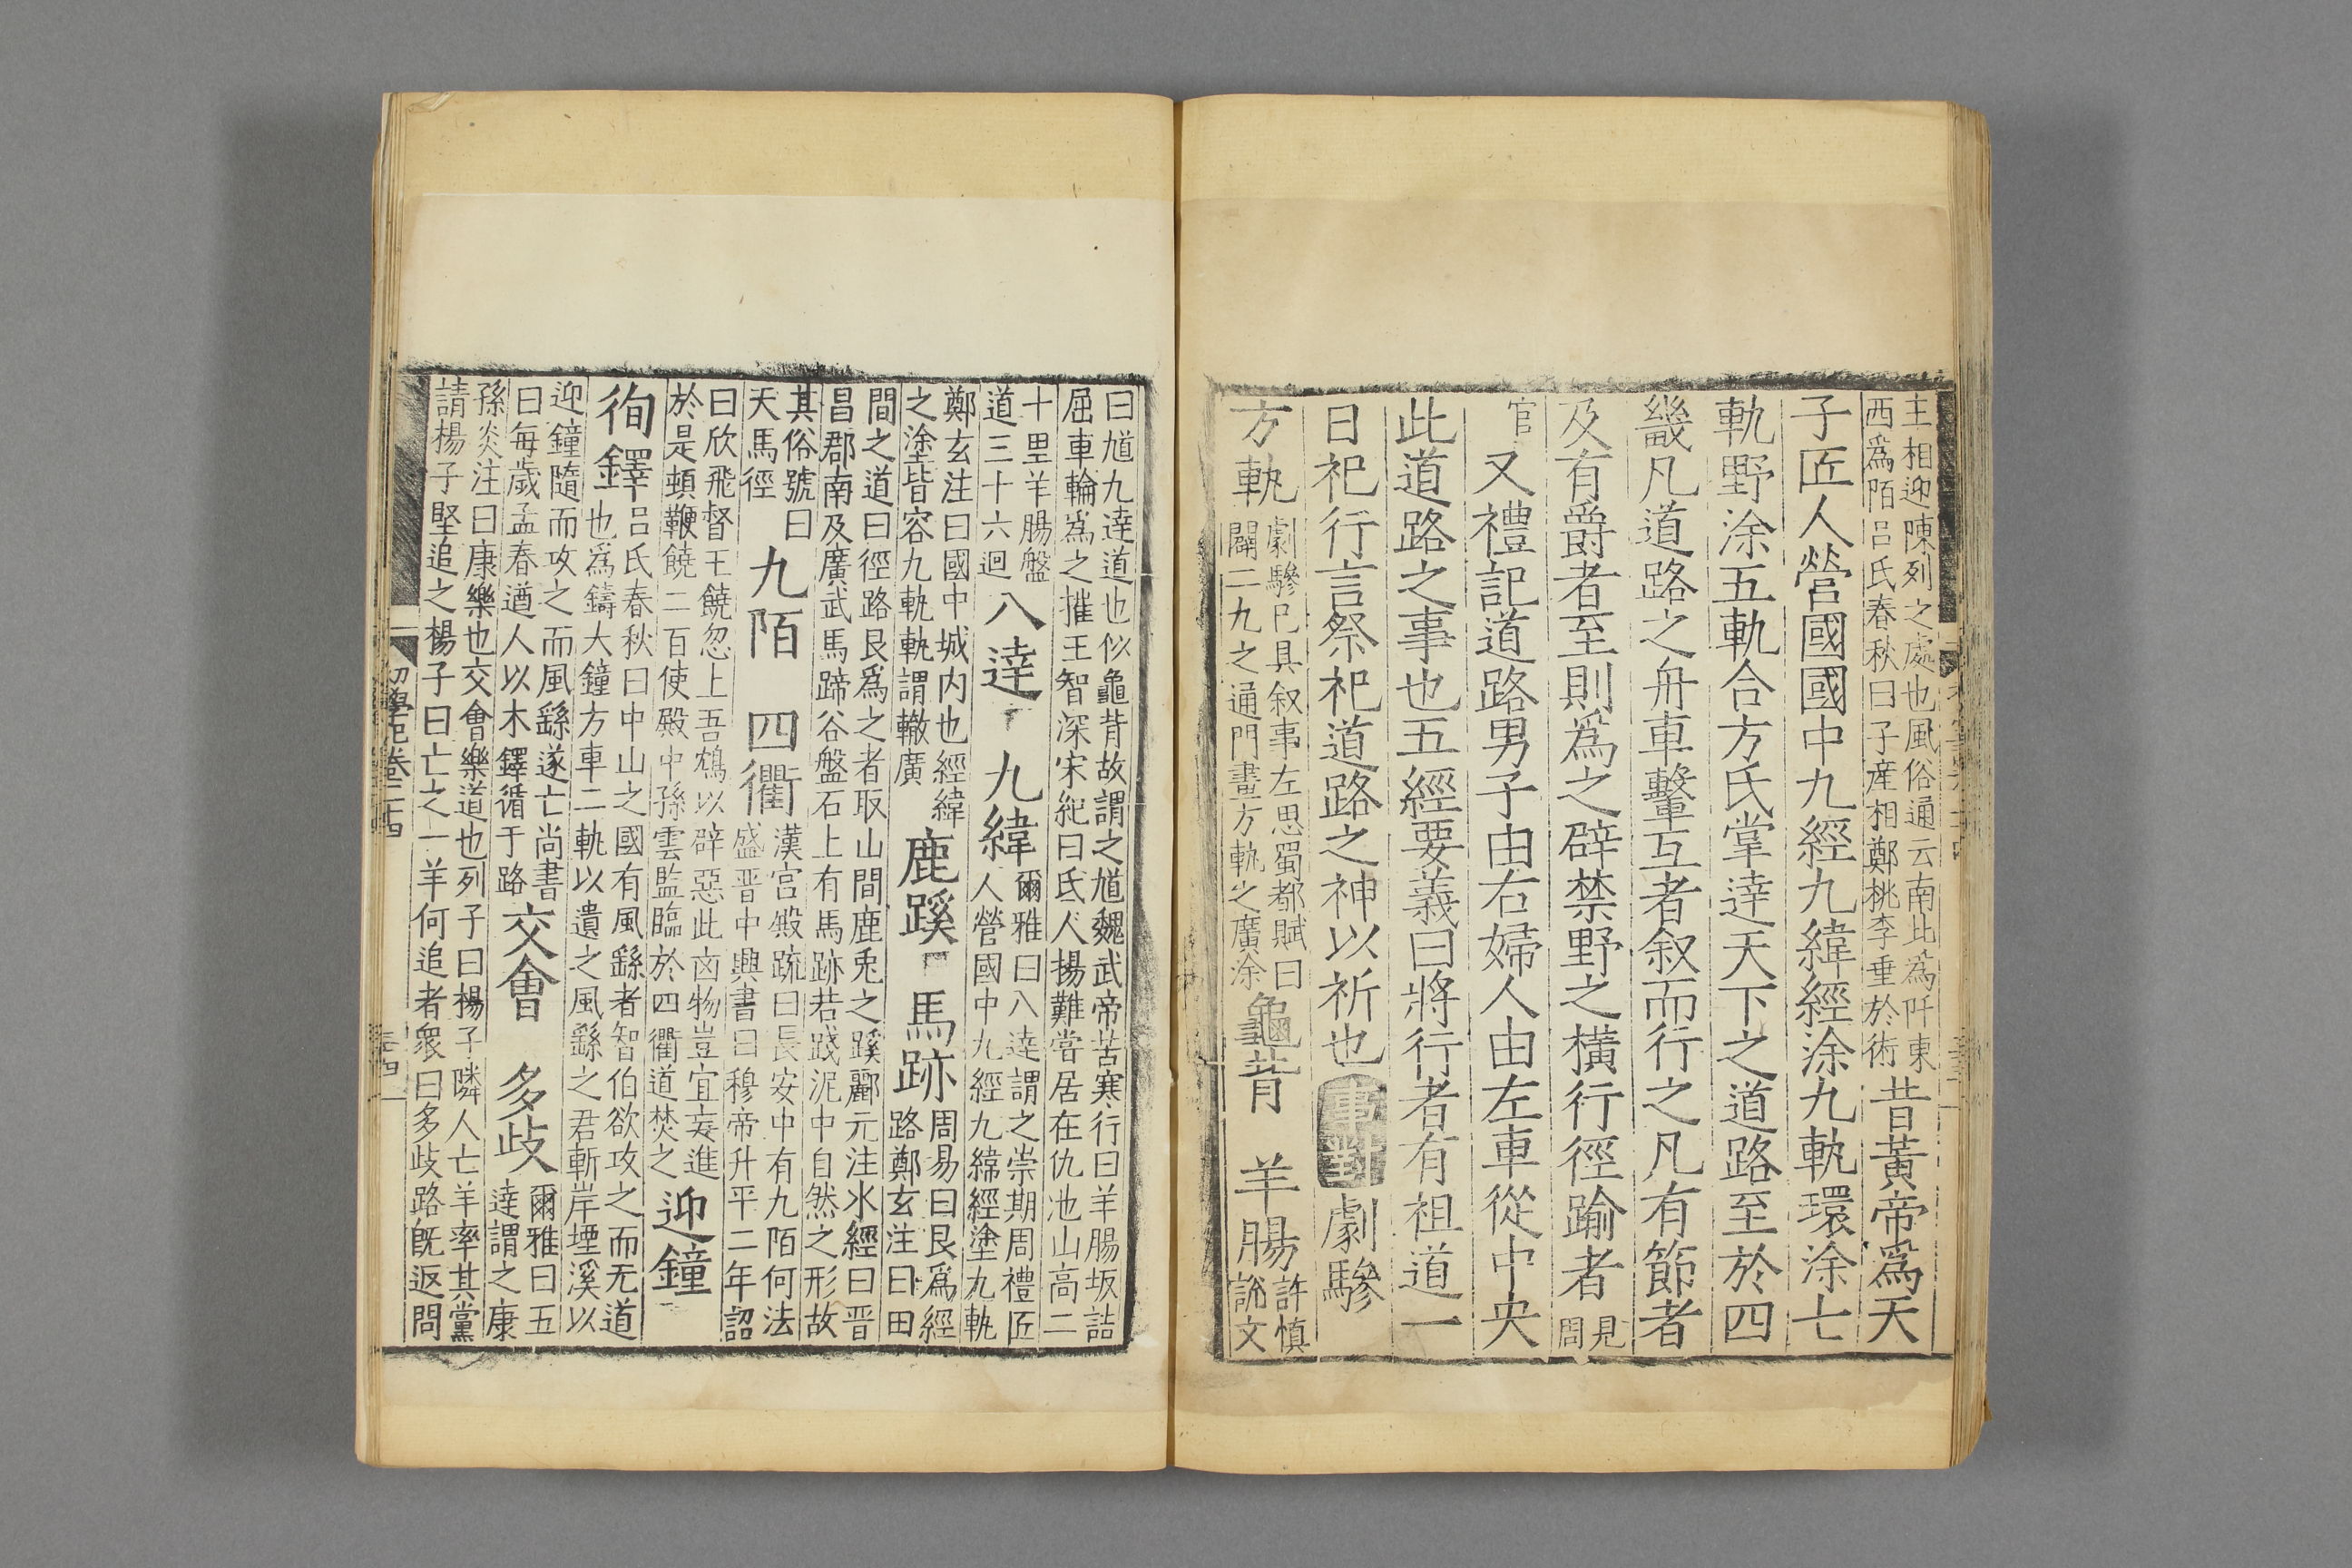 主相迎陳列之處也風俗通云南北爲阡東
西爲陌吕氏春秋曰子產相鄭桃李垂於術
昔黃帝爲天
子匠人營國國中九經九緯經涂九軌環涂七
軌野涂五軌合方氏掌達天下之道路至於四
畿凡道路之舟車轚互者叙而行之凡有節者
及有爵者至則爲之辟禁野之橫行徑踰者
見周
官
又禮記道路男子由右婦人由左車從中央
此道路之事也五經要義曰將行者有祖道一
曰祀行言祭祀道路之神以祈也
事對
劇驂
方軌
劇驂已具叙事左思蜀都賦曰
闢二九之通門畫方軌之廣涂
龜背 羊腸
許慎
說文
曰馗九達道也似龜背故謂之馗魏武帝苦寒行曰羊腸坂詰
屈車輪爲之摧王智深宋紀曰氐人揚難當居在仇池山高二
十里羊腸盤
道三十六迴
八達 九緯
爾雅曰八達謂之崇期周禮匠
人營國中九經九緯經塗九軌
鄭玄注曰國中城内也經緯
之塗皆容九軌軌謂轍廣
鹿蹊 馬跡
周易曰艮爲徑
路鄭玄注曰田
間之道曰徑路艮爲之者取山間鹿兎之蹊酈元注水經曰晉
昌郡南及廣武馬蹄谷盤石上有馬跡若踐泥中自然之形故
其俗號曰
天馬徑
九陌 四衢
漢宫殿疏曰長安中有九陌何法
盛晋中興書曰穆帝升平二年詔
曰欣飛督王饒忽上吾鴆以辟惡此凶物豈宜妄進
於是頓鞭饒二百使殿中孫雲監臨於四衢道焚之
迎鐘
徇鐸
吕氏春秋曰中山之國有風繇者智伯欲攻之而无道
也爲鑄大鐘方車二軌以遺之風繇之君斬岸堙溪以
迎鐘隨而攻之而風繇遂亡尚書
曰每歲孟春遒人以木鐸循于路
交會 多歧
爾雅曰五
達謂之康
孫炎注曰康樂也交會樂道也列子曰楊子隣人亡羊率其黨
請楊子堅追之楊子曰亡之一羊何追者衆曰多歧路旣返問
初學記卷二十四